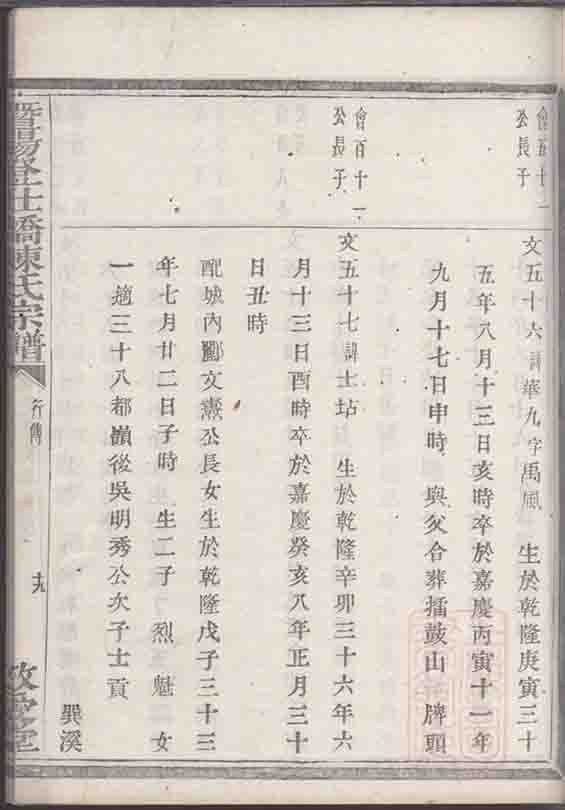 會五十二
公長子
文五十六諱華九字禹風 生於乾隆庚寅三十
五年八月十三日亥時卒於嘉慶丙寅十一年
九月十七日申時 與父合葬擂鼓山 牌頭
會百十一
公長子
文五十七諱士坫 生於乾隆辛卯三十六年六
月十三日酉時卒於嘉慶癸亥八年正月三十
日丑時
配城內酈文燾公長女生於乾隆戊子三十三
年七月廿二日子時 生二子 烈 魁 女
一適三十八都嶺後吳明秀公次子士貢
巽溪
暨陽登仕橋陳氏宗譜
行傳
十九
敦睦堂